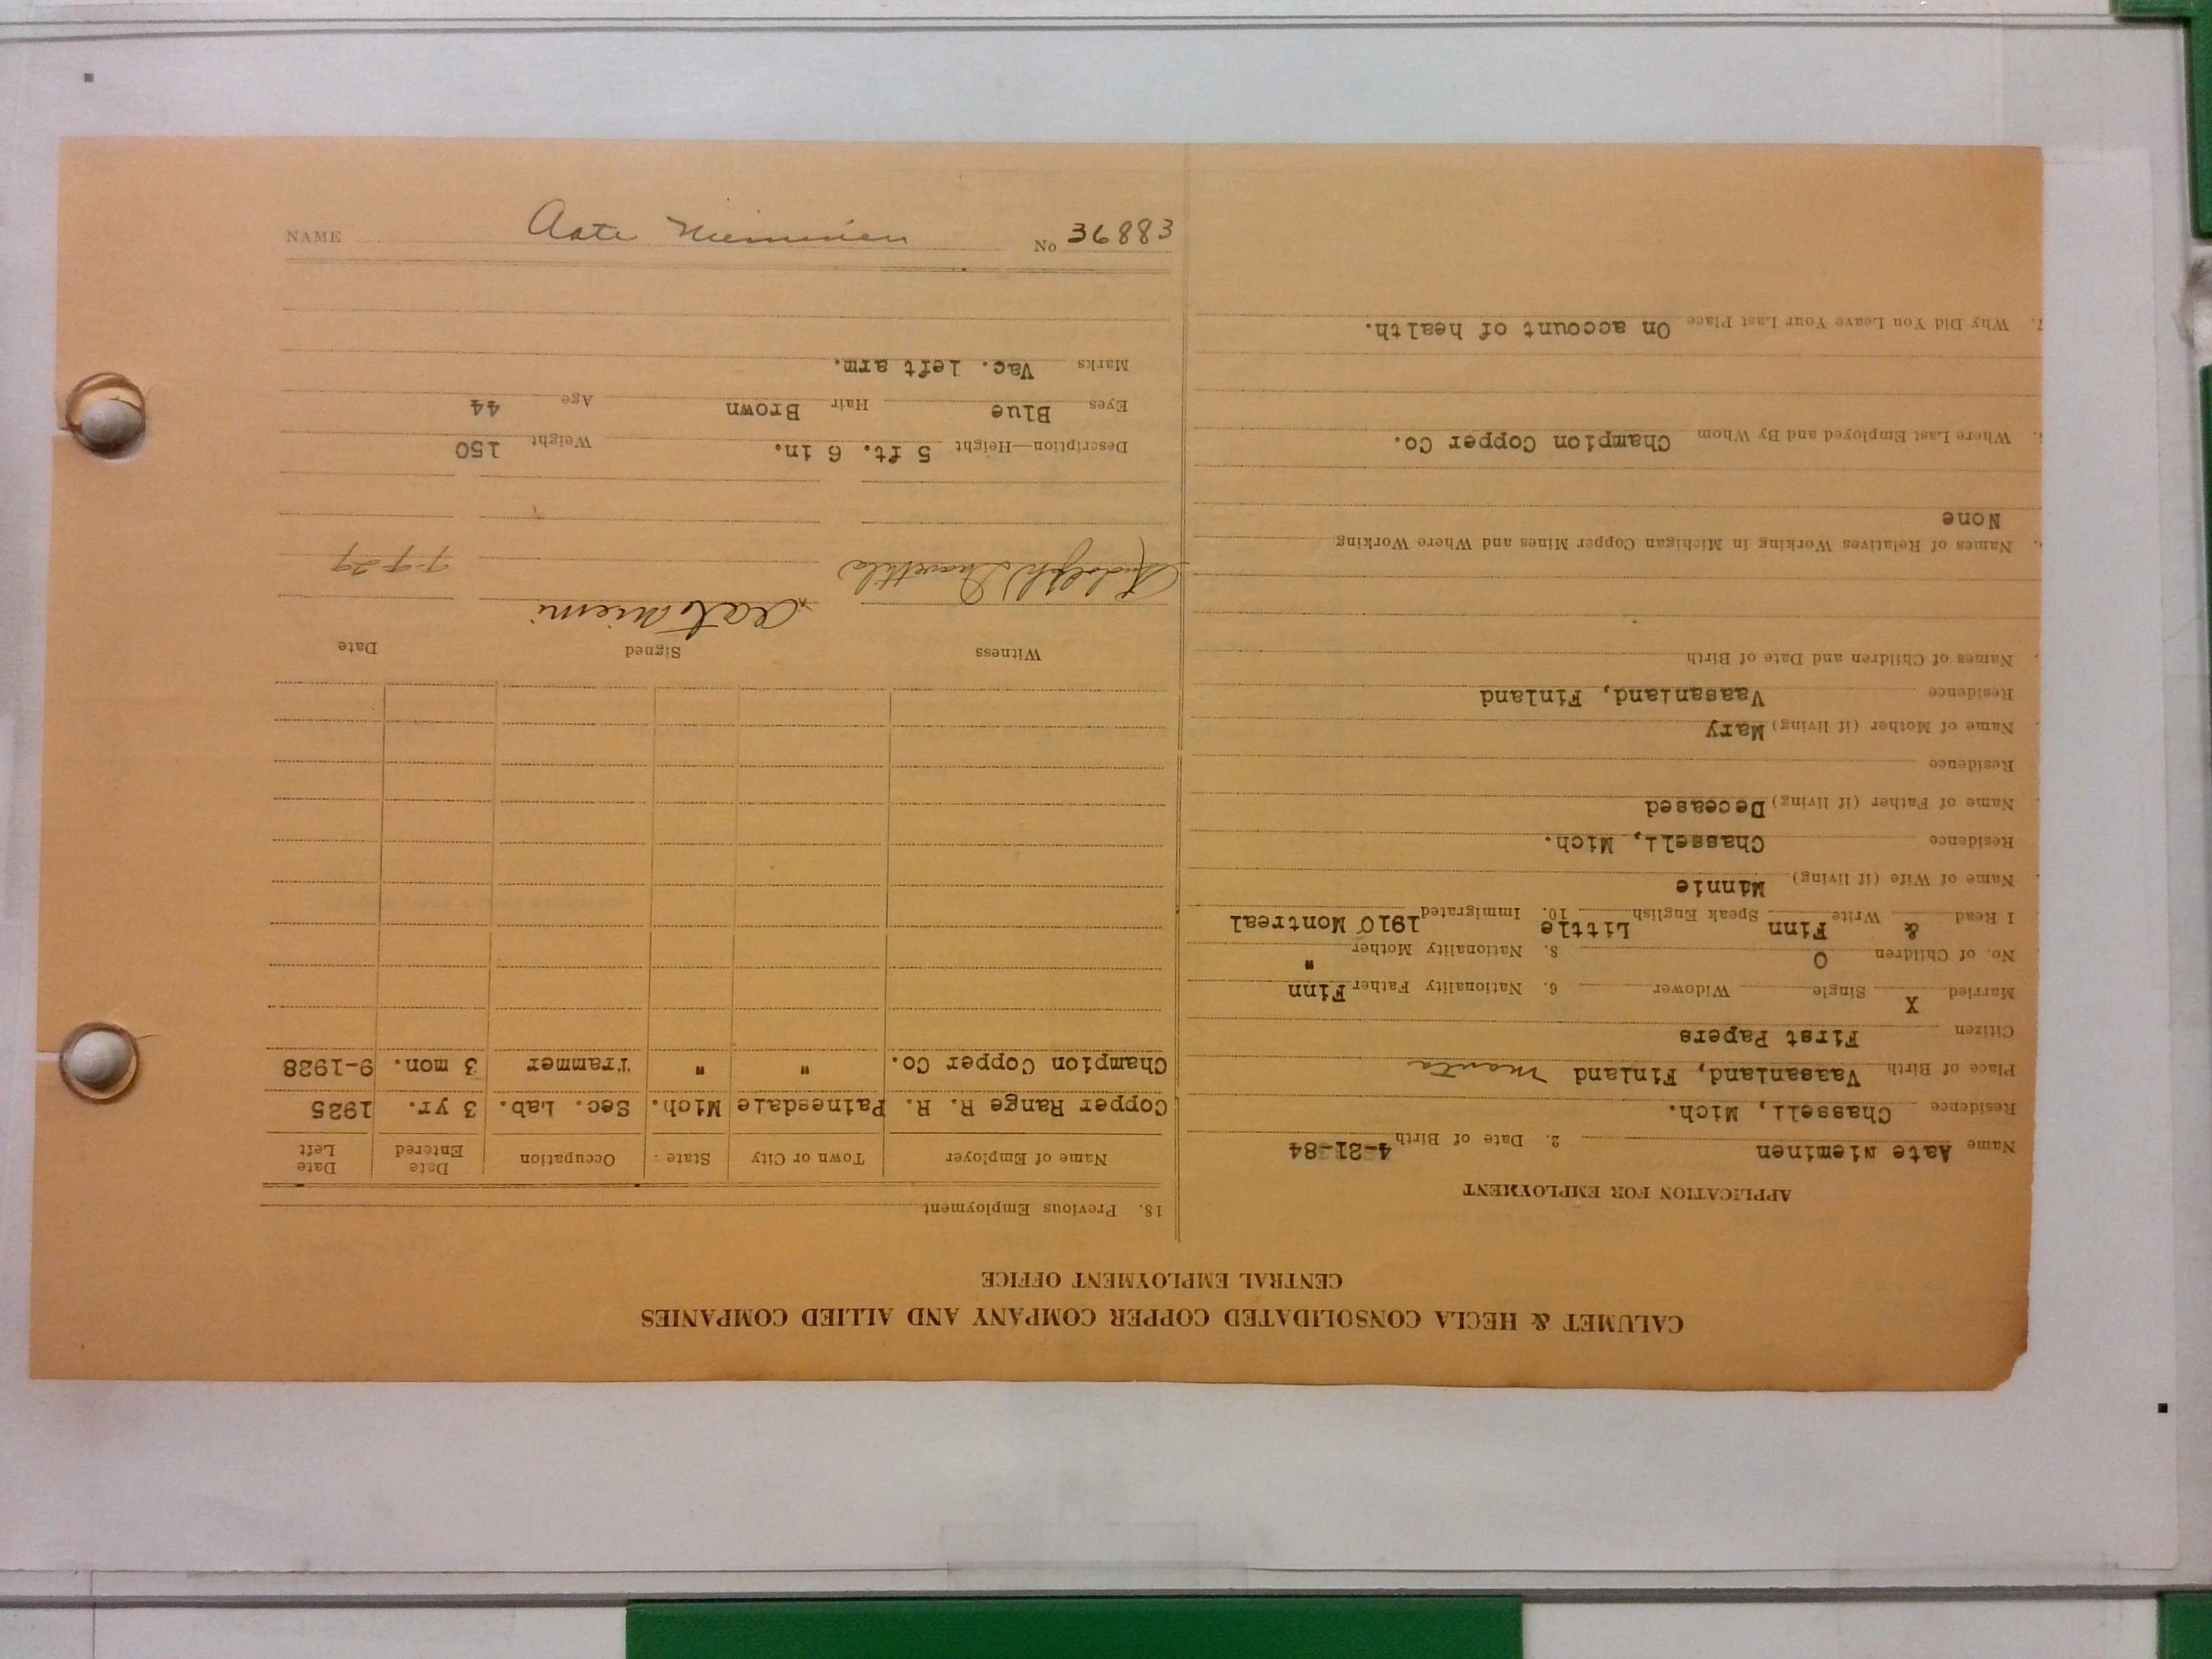 NAME Aate Nieminen No 36883
CALUMET & HECLA CONSOLIDATED COPPER COMPANY AND ALLIED COMPANIES
CENTRAL EMPLOYMENT OFFICE
APPLICATION FOR EMPLOYMENT
Name Aate Nieminen 2. Date of Birth 4-21-84
Residence Chassell, Mich.
Place of Birth Vaasanland, Finland
Citizen First Papers
Married X Single Widower 6. Nationality Father Finn
No. of Children 0 8. Nationality Mother "
I Read & Write Finn Speak English Little 10. Immigrated 1910 Montreal
Name of Wife (if living) Minnie
Residence Chassell, Mich.
Name of Father (if living) Deceased
Residence
Name of Mother (if living) Mary
Residence Vaasanland, Finland
Names of Children and Date of Birth
Names of Relatives Working in Michigan Copper Mines and Where Working
None
Where Last Employed and By Whom Champion Copper Co.
7. Why Did You Leave Your Last Place On account of health.
18. Previous Employment
Name of Employer Town or City State Occupation Date Entered Date Left
Copper Range R. R. Painesdale Mich. Sec. Lab. 3 yr. 1925
Champion Copper Co. " " Trammer 3 mon. 9-1928
Witness Signed Date
Rudolph x Aate Niemi
Description—Height 5 ft. 6 in. Weight 150
Eyes Blue Hair Brown Age 44
Marks Vac. left arm.